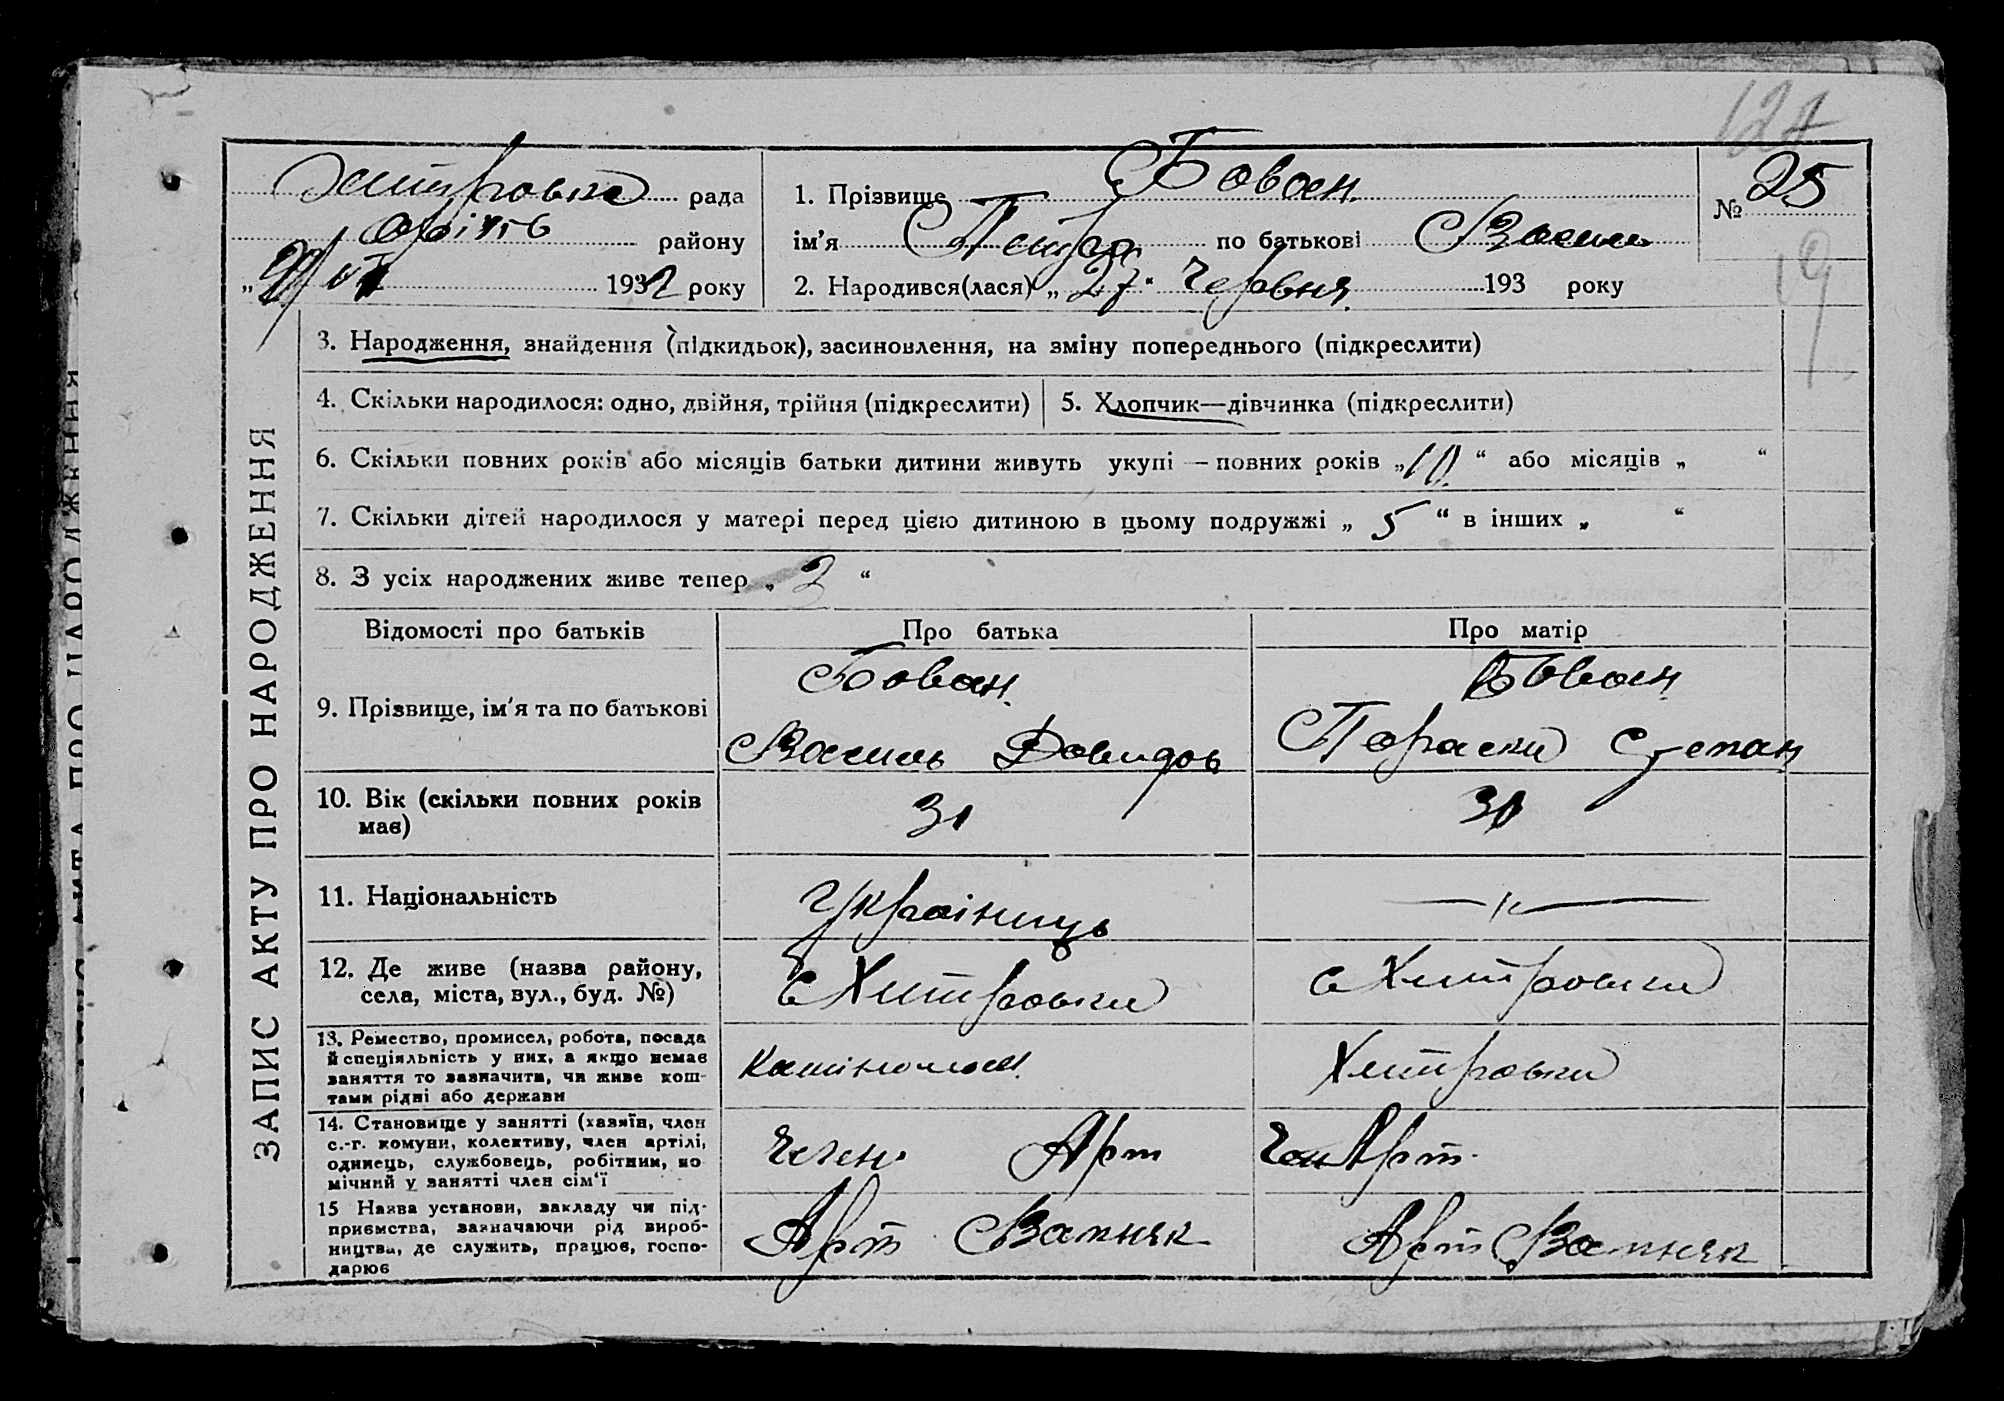 127
Хитровка рада
району
"29/VI 1932 року
1. Прізвище Бован
ім'я Петро по батькові Васил
№ 25
2. Народився(лася) „27" Червня 193 року
19
3. Народження, знайдення (підкидьок), засиновлення, на зміну попереднього (підкреслити)
4. Скільки народилося: одно, двійня, трійня (підкреслити)
5. Хлопчик—дівчинка (підкреслити)
6. Скільки повних років або місяців батьки дитини живуть укупі — повних років „10" або місяців „ "
7. Скільки дітей народилося у матері перед цією дитиною в цьому подружжі „ 5 " в інших „ "
8. З усіх народжених живе тепер „ 3 "
ЗАПИС АКТУ ПРО НАРОДЖЕННЯ
Відомості про батьків
Про батька
Про матір
9. Прізвище, ім'я та по батькові
Бован
Василь Давидов
Бован
Параски Степан
10. Вік (скільки повних років має)
31
30
11. Національність
Українець
—"—
12. Де живе (назва району,
села, міста, вул., буд. №)
с Хитровки
с Хитровки
13. Ремество, промисел, робота, посада
й спеціяльність у них, а якщо немає
заняття то зазначити, чи живе кош-
тами рідні або держави
Каміноло
Хитровки
14. Становище у занятті (хазяїн, член
с.-г. комуни, колективу, член артілі,
одинець, службовець, робітник, по
мічний у занятті член сім'ї
Член Арт
Член Арт.
15 Назва установи, закладу чи під-
приємства, зазначаючи рід вироб-
ництва, де служить, працює, госпо-
дарює
Арт Вапняк
Арт Вапняк